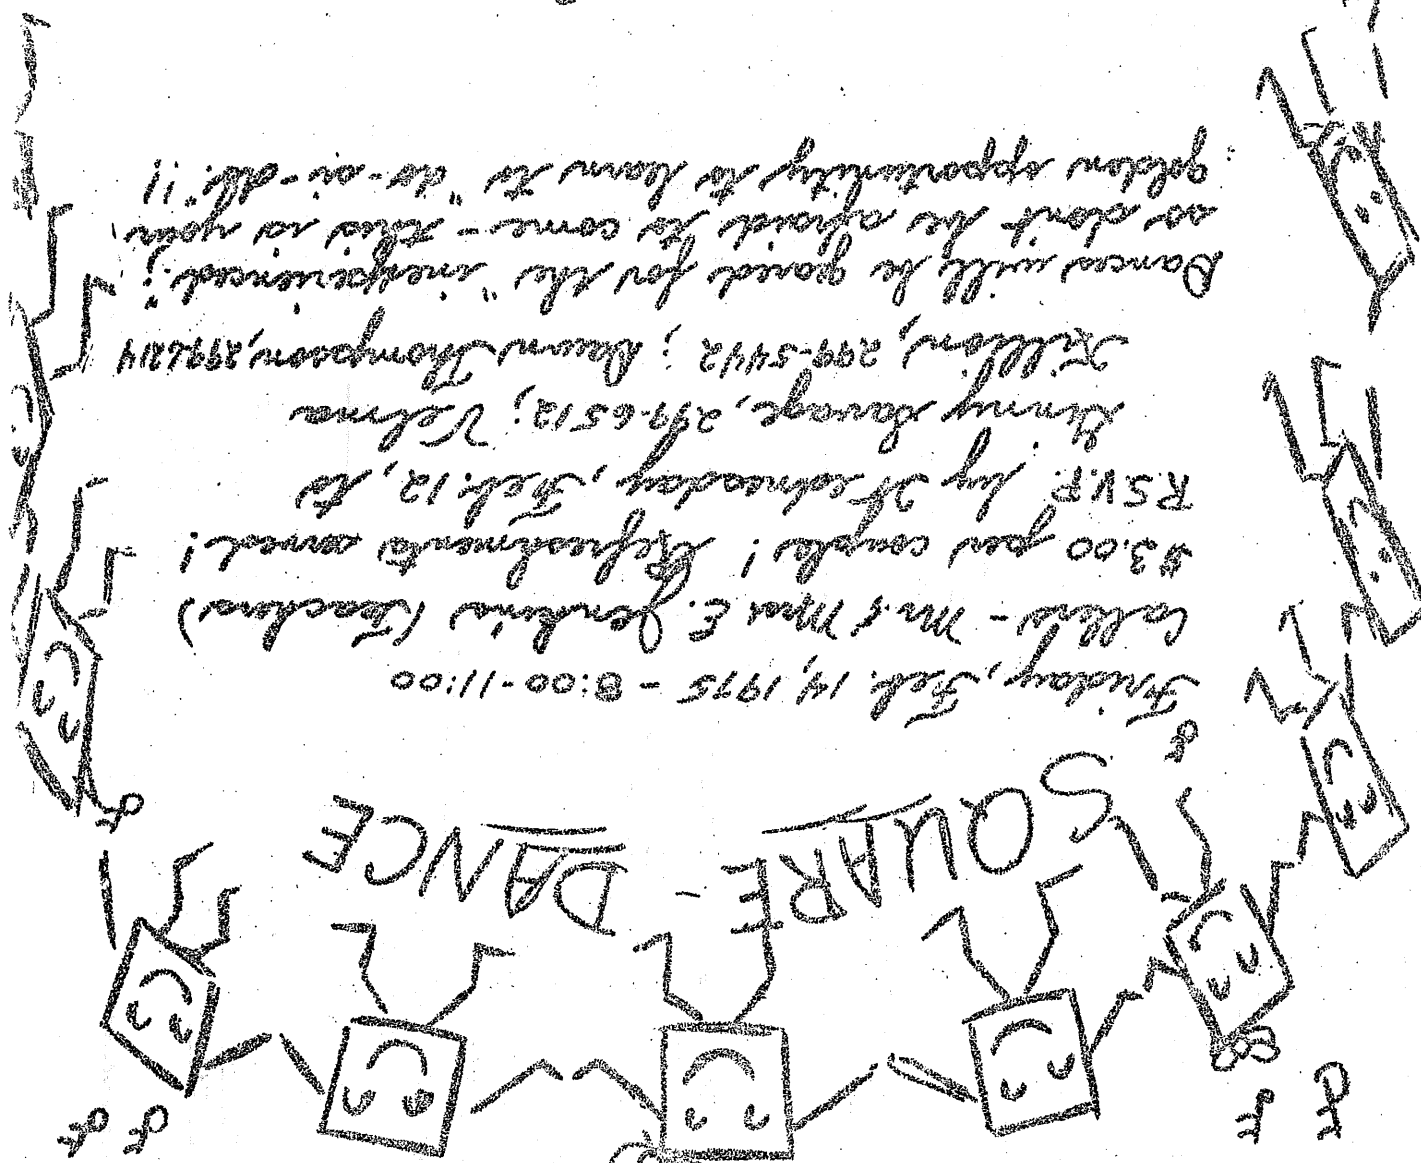 SQUARE - DANCE
Friday, Feb. 14, 1975 - 8:00-11:00
Callers - Mr. & Mrs. E. Jenkins (Teachers)
$3.00 per couple! Refreshments served!
R.S.V.P. by Wednesday, Feb. 12, to
Ginny Savage, 299-6512; Velma
Killion, 299-5442; Dawn Thompson, 299-6214
Dances will be geared for the "inexperienced",
so don't be afraid to come - this is your
golden opportunity to learn to "do-si-do"!!